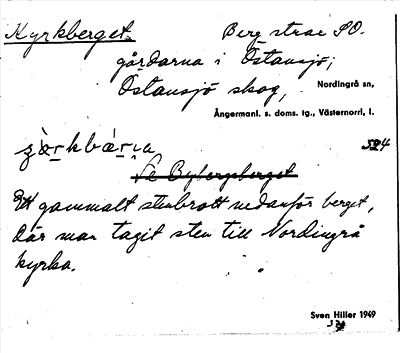 Kyrkberget. Berg strax SO.
gårdarna i Östansjö;
Östansjö skog, Nordingrå sn,
Ångermanl. s. doms. tg., Västernorrl, l.
524
Se Bybergsberget
Ett gammalt stenbrott nedanför berget,
där man tagit sten till Nordingrå
kyrka.
Sven Hiller 1949